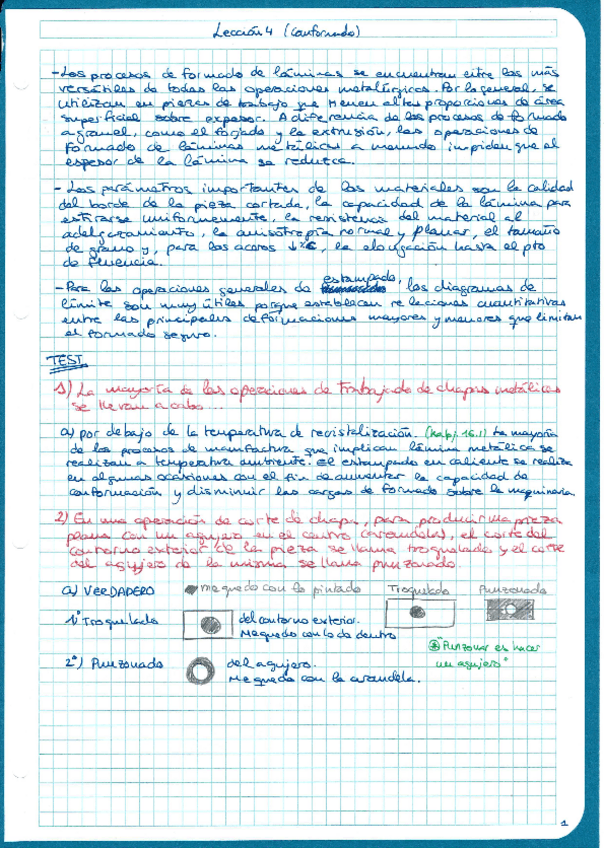 Lección 4 (Conformado)
-Los procesos de formado de láminas se encuentran entre los más
versátiles de todas las operaciones metalúrgicas. Por lo general, se
utilizan en piezas de trabajo que tienen altas proporciones de área
superficial sobre espesor. A diferencia de los procesos de formado
a granel, como el forjado y la extrusión, las operaciones de
formado de láminas metálicas a menudo impiden que el
espesor de la lámina se reduzca.
- Los parámetros importantes de los materiales son la calidad
del borde de la pieza cortada, la capacidad de la lámina para
estirarse uniformemente, la resistencia del material al
adelgazamiento, la anisotropía normal y planar, el tamaño
de grano y, para los aceros ↓%C, la elongación hasta el pto
de fluencia.
estampado,
-Para las operaciones generales de los diagramas de
límite son muy útiles porque establecen relaciones cuantitativas
entre las principales deformaciones mayores y menores que limitan
el formado seguro.
TEST
1) La mayoría de las operaciones de trabajado de chapas metálicas
se llevan a cabo...
a) por debajo de la temperatura de recristalización. (16.1) La mayoría
de los procesos de manufactura que implican lámina metálica se
realizan a temperatura ambiente. El estampado en caliente se realiza
en algunas ocasiones con el fin de aumentar la capacidad de
conformación y disminuir las cargas de formado sobre la maquinaria
2) En una operación de corte de chapa, para producir una pieza
plana con un agujero en el centro (arandela), el corte del
contorno exterior de la pieza se llama troquelado y el corte
del agujero de la misma se llama punzonado.
a) VERDADERO me quedo con lo pintado Troquelado Punzonado
1º Troquelado del contorno exterior.
Me quedo con lo de dentro
* Punzonar es hacer
un agujero"
2º) Punzonado del agujero.
Me quedo con la arandela.
1